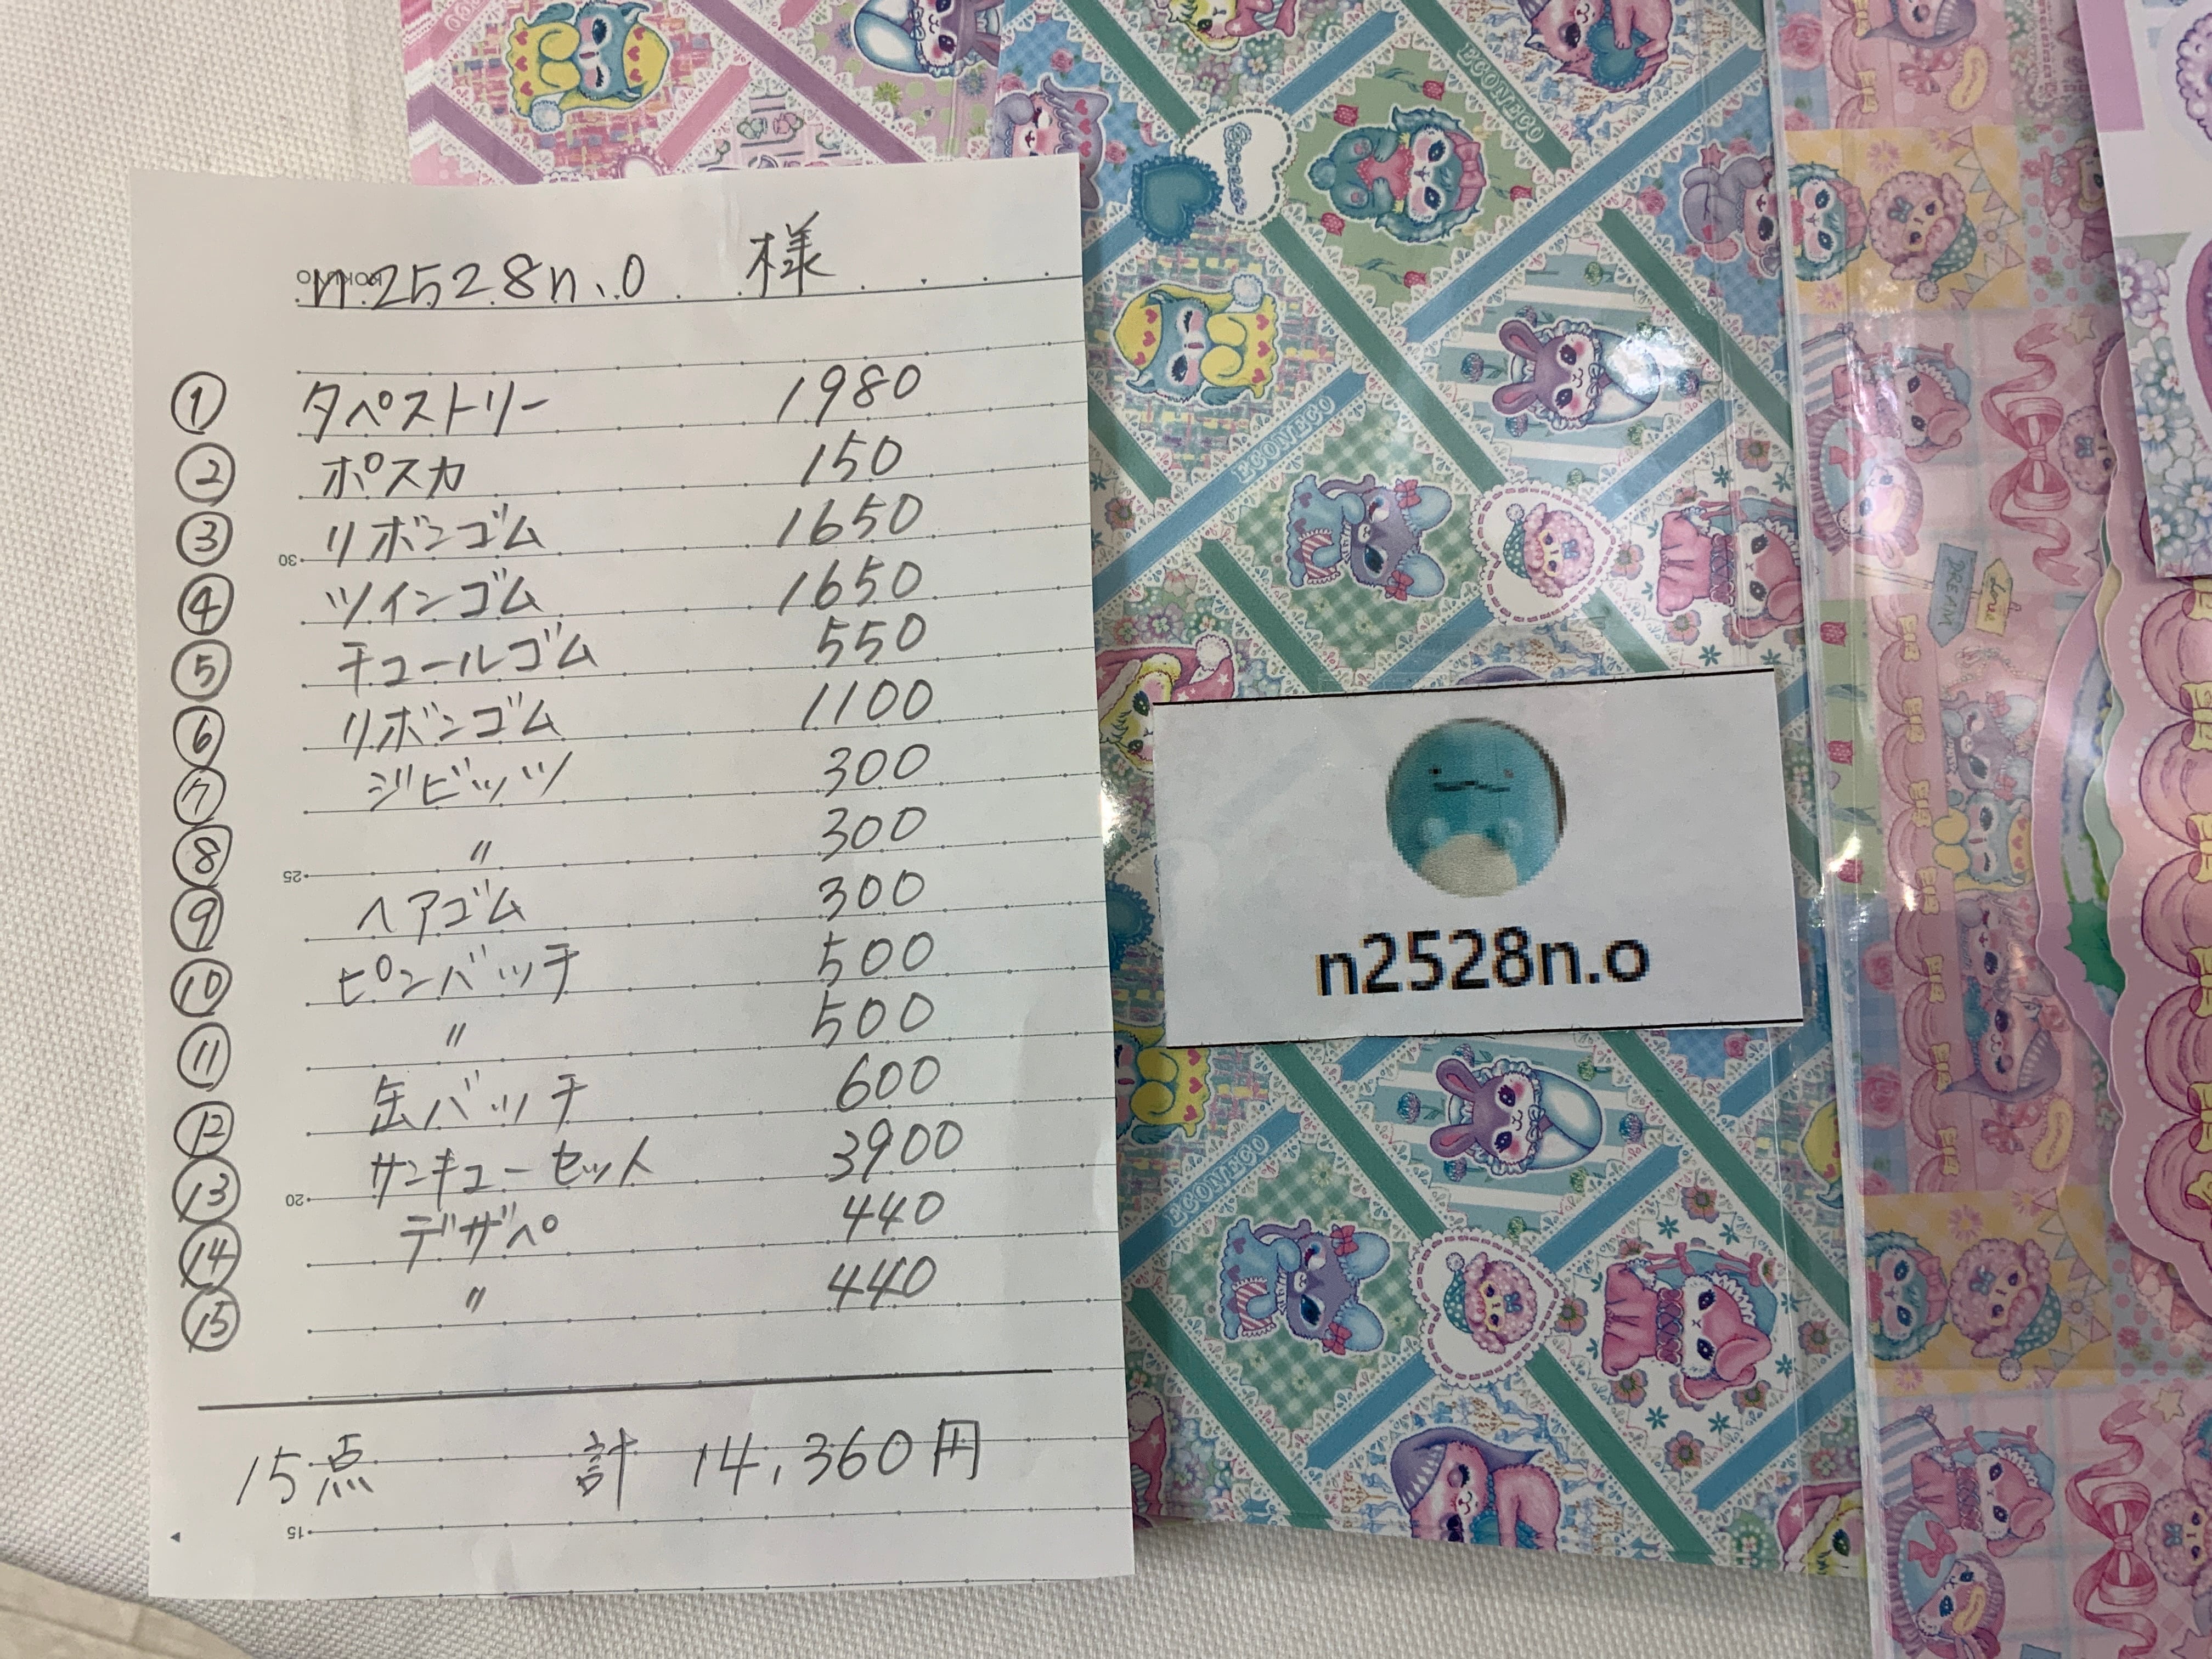 n2528n.o 様
① タペストリー 1980
② ポスカ 150
③ リボンゴム 1650
④ ツインゴム 1650
⑤ チュールゴム 550
⑥ リボンゴム 1100
⑦ ジビッツ 300
⑧ 〃 300
⑨ ヘアゴム 300
⑩ ピンバッチ 500
⑪ 〃 500
⑫ 缶バッチ 600
⑬ サンキューセット 3900
⑭ デザペ 440
⑮ 〃 440
15点 計 14,360円
30
25
20
15
n2528n.o
ECONECO
ECONECO
ECONECO
DREAM
Love